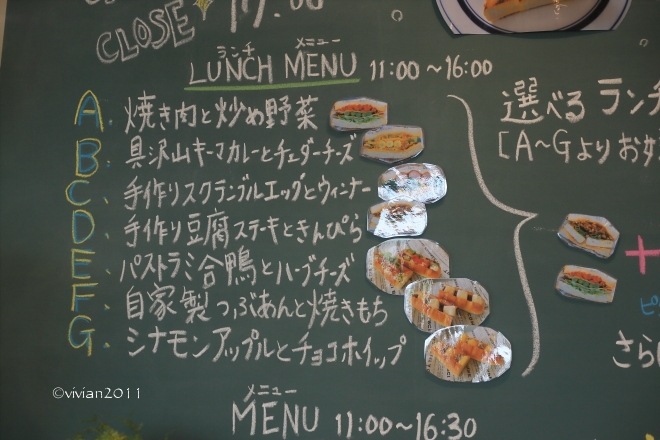 CLOSE 17:00
ランチ メニュー
LUNCH MENU 11:00～16:00
A. 焼き肉と炒め野菜
B. 具沢山キーマカレーとチェダーチーズ
C. 手作りスクランブルエッグとウィンナー
D. 手作り豆腐ステーキときんぴら
E. パストラミ合鴨とハーブチーズ
F. 自家製つぶあんと焼きもち
G. シナモンアップルとチョコホイップ
選べるランチ
[A～Gよりお好
+
さら
メニュー
MENU 11:00～16:30
©vivian2011